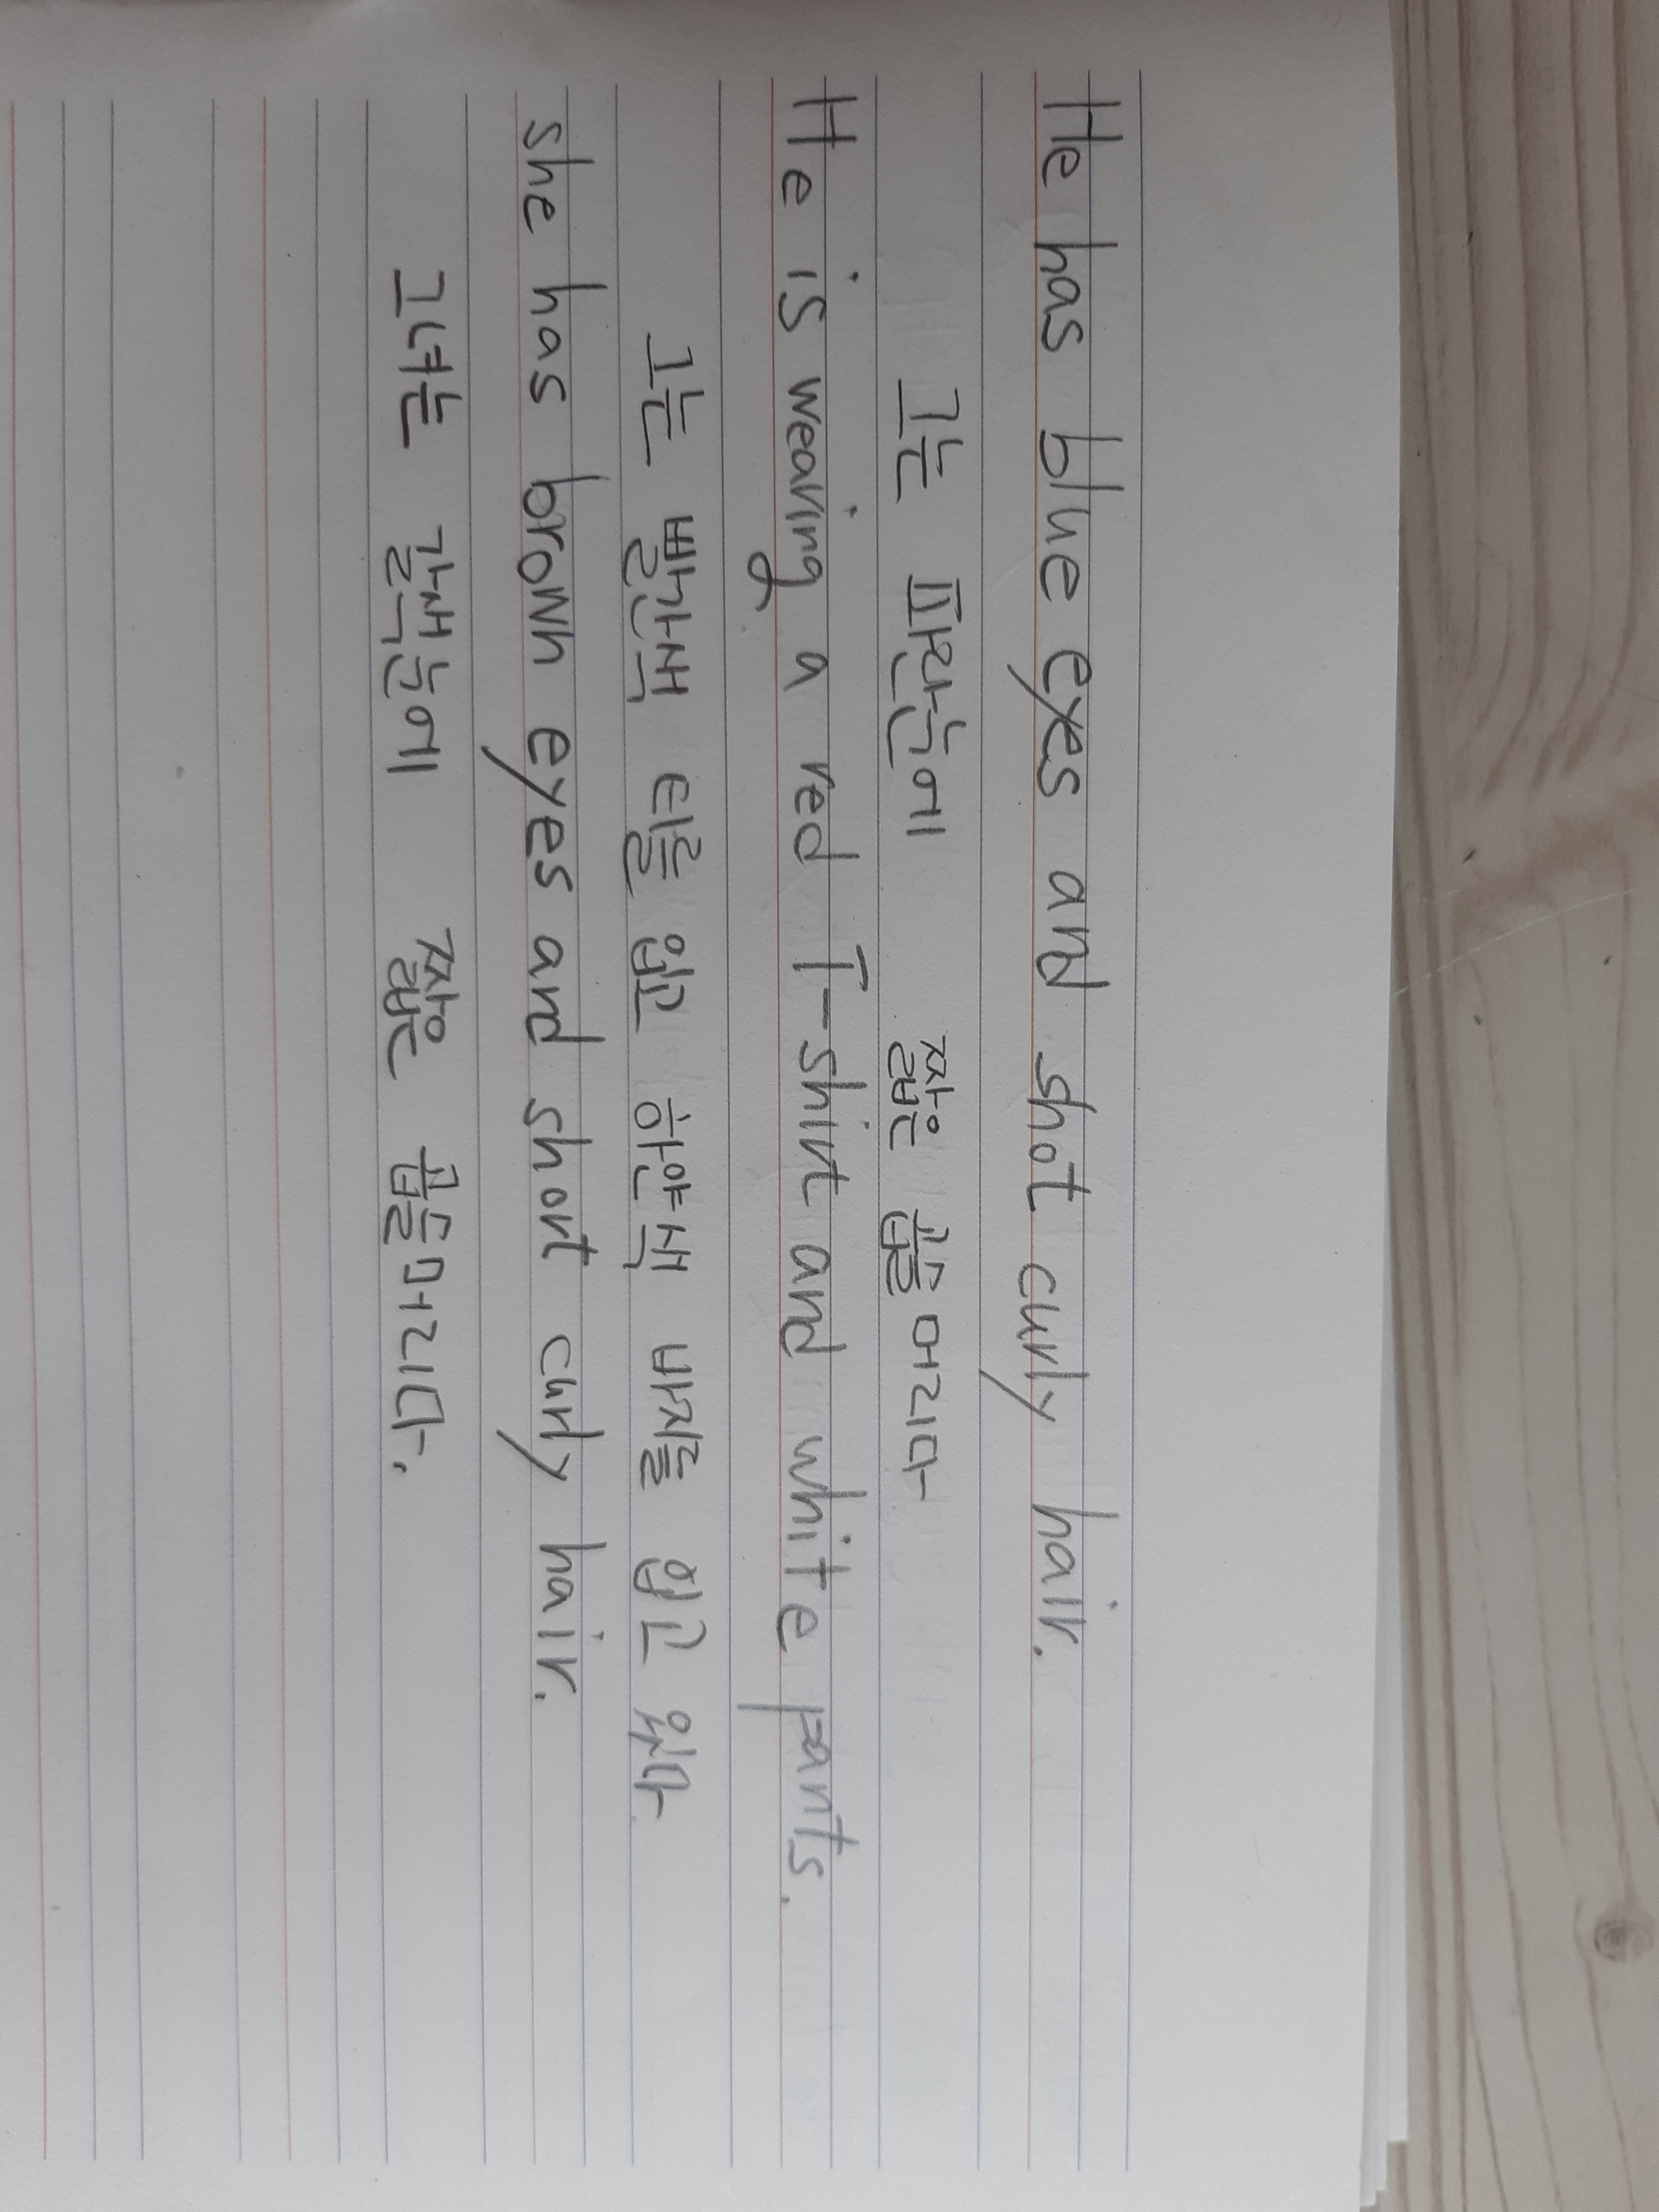 He has blue eyes and shot curly hair.
그는 파란눈에 짧은 곱슬머리다
He is wearing a red T-shirt and white pants.
그는 빨간색 티를 입고 하얀색 바지를 입고 있다
she has brown eyes and short curly hair.
그녀는 갈색눈에 짧은 곱슬머리다.